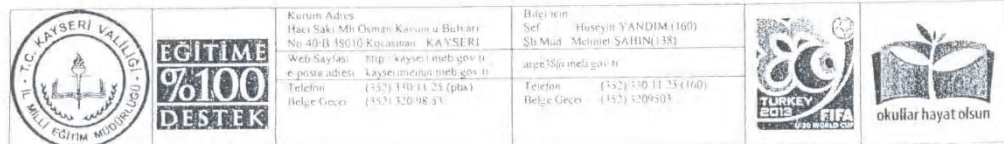 T.C. KAYSERİ VALİLİĞİ
İL MİLLİ EĞİTİM MÜDÜRLÜĞÜ
EĞİTİME
%100
DESTEK
Kurum Adres
Hacı Saki Mh Osman Kavuncu Bulvarı
No 40-B 38010 Kocasinan KAYSERİ
Web Sayfası http://kayseri.meb.gov.tr
e-posta adresi kayserimem@meb.gov.tr
Telefon (352) 330 11 25 (pbx)
Belge Geçer (352) 320 98 53
Bilgi için
Şef Hüseyin YANDIM (160)
Şb.Müd Mehmet ŞAHİN(138)
arge38@meb.gov.tr
Telefon (352) 330 11 25 (160)
Belge Geçer (352) 3209503
TURKEY
2013 FIFA
U-20 WORLD CUP
okullar hayat olsun